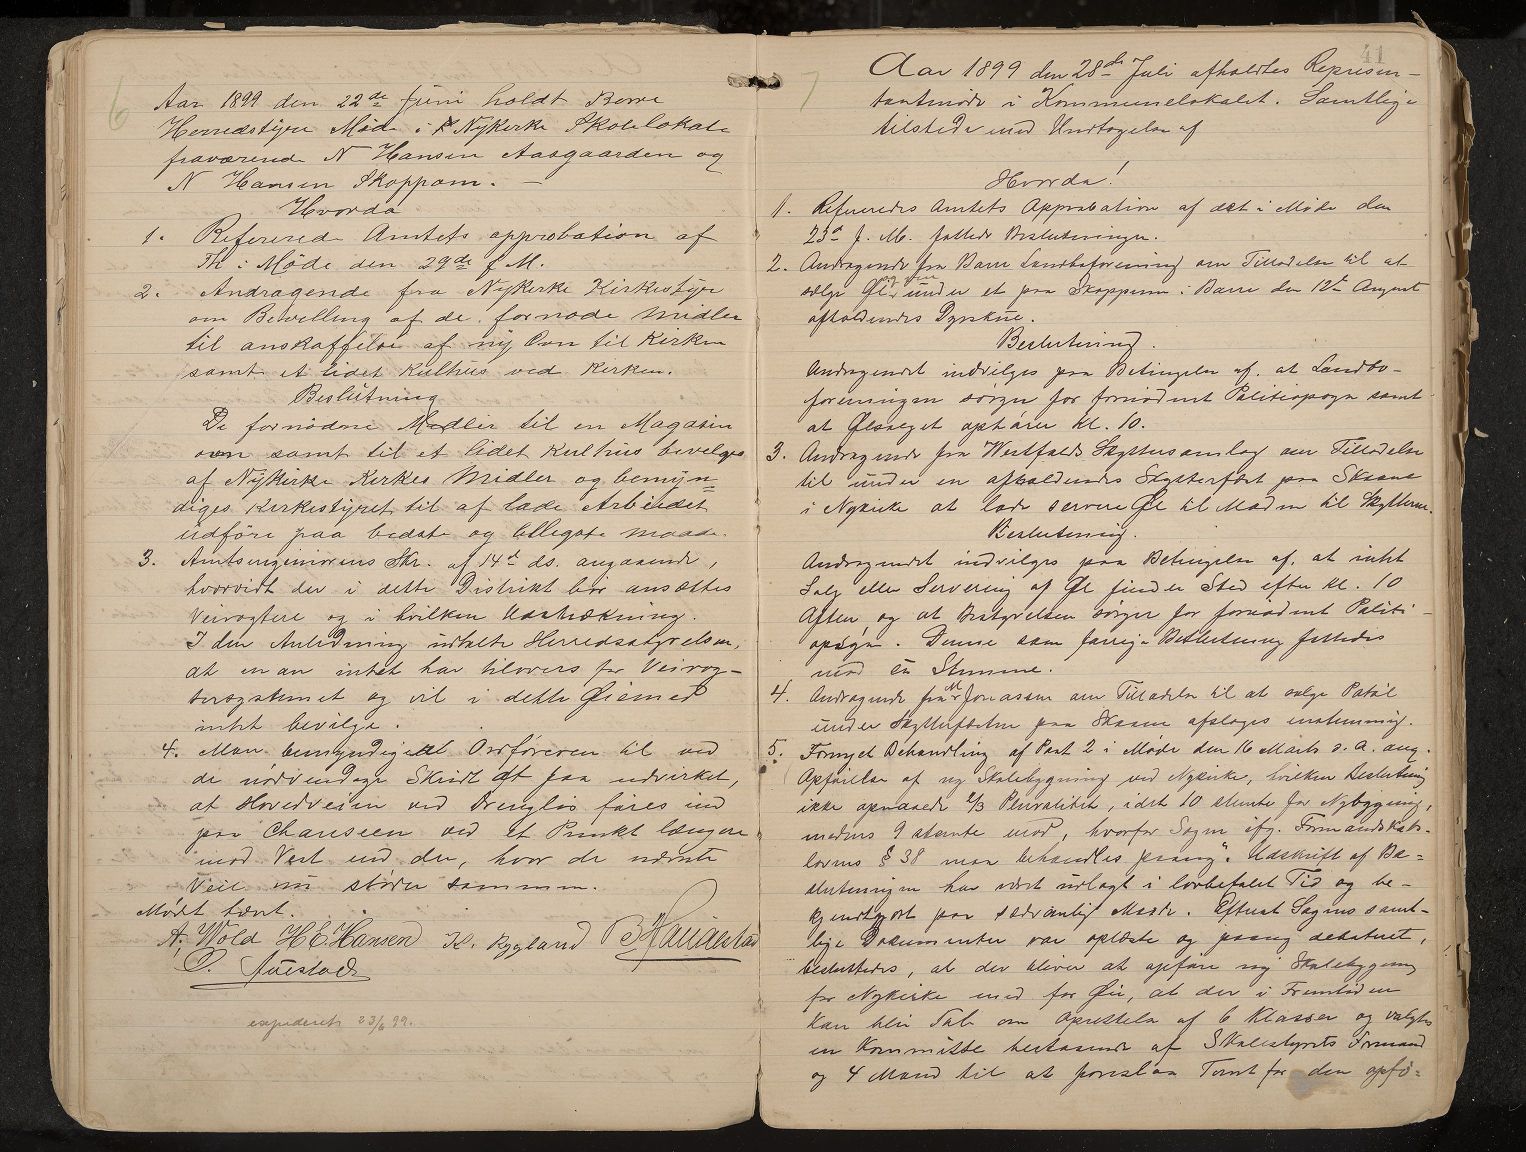 6
Aar 1899 den 22de Juni holdt Borre
Herredstyre Møde i Nykirke Skolelokale
fraværende N Hansen Aasgaarden og
N Hansen Skoppom. —
Hvorda
1. Refererede Amtets approbation af
i Møde den 29de f. M.
2. Andragende fra Nykirke Kirkestyre
om Bevilling af de fornøde Midler
til anskaffelse af ny Ovn til Kirken
samt et lidet Kulhus ved Kirken.
Beslutning
De fornødne Midler til en Magasin
ovn samt til et lidet Kulhus bevilges
af Nykirke Kirkes Midler og bemyn=
diges Kirkestyret til at lade Arbeidet
udføre paa bedste og billigste Maade.
3. Amtsingeniørens Skr. af 14de ds. angaaende,
hvorvidt der i dette Distrikt bør ansættes
Veivogtere og i hvilken Udstrækning.
I den Anledning udtalte Herredsstyrelsen,
at man intet har tilovers for Veivog-
tersystemet og vil i dette Øiemed
intet bevilge.
4. Man bemyndiget Ordføreren til ved
de nødvendige Skridt at faa udvirket,
at Hovedveien ved føres ind
paa Chauseen ved et Punkt længere
mod Vest end der, hvor de nævnte
Veie nu støder sammen.
Mødet hævet.
A. Wold H E Hansen K. Rygland
expederet 23/6 99.
41
7
Aar 1899 den 28de Juli afholdtes Represen-
tantmøde i Kommunelokalet. Samtlige
tilstede med Undtagelse af
Hvorda!
1. Refereredes Amtets Approbation af det i Møde den
23de f. M. fattede Beslutninger.
2. Andragende fra Borre Landboforening om Tilladelse til at
sælge Øl under et paa Skoppum i Borre den 12te August
afholdendes Dyrskue.
Beslutning.
Andragendet indvilges paa Betingelse af, at Landbo-
foreningen sørger for fornødent Politiopsyn samt
at Ølsalget ophører kl. 10.
3. Andragende fra Westfolds Skyttersamlag om Tilladelse
til under en afholdendes Skytterfest paa Skaane
i Nykirke at lade servere Øl til Maden til Skytterne.
Beslutning.
Andragendet indvilges paa Betingelse af, at intet
Salg eller Servering af Øl finder Sted efter kl. 10
Aften og at Bestyrelsen sørger for fornødent Politi-
opsyn. Denne som forrige Beslutning fattedes
mod en Stemme.
4. Andragende fra M Jonassen om Tilladelse til at sælge Patøl
under Skytterfesten paa Skaane afslages enstemmig.
5. Fornyet Behandling af Post 2 i Møde den 16 Marts d. A. ang.
Opførelse af ny Skolebygning ved Nykirke, hvilken Beslutning
ikke opnaaede 2/3 Pluralitet, idet 10 stemte for Nybygning,
medens 9 stemte mod, hvorfor Sagen ifg. Formandskabs-
lovens § 38 maa behandles paany. Udskrift af Be=
slutningen har været udlagt i lovbefalet Tid og be-
kjendtgjort paa sædvanlig Maade. Efterat Sagens samt-
lige Dokumenter var oplæste og paany debateret,
besluttedes, at der bliver at opføre ny Skolebygning
for Nykirke med for Øie, at der i Fremtiden
kan blive Tale om Oprettelse af 6 Klasser og valgtes
en Kommitte bestaaende af Skolestyrets Formand
og 4 Mand til at foreslaa Tomt for den opfø=